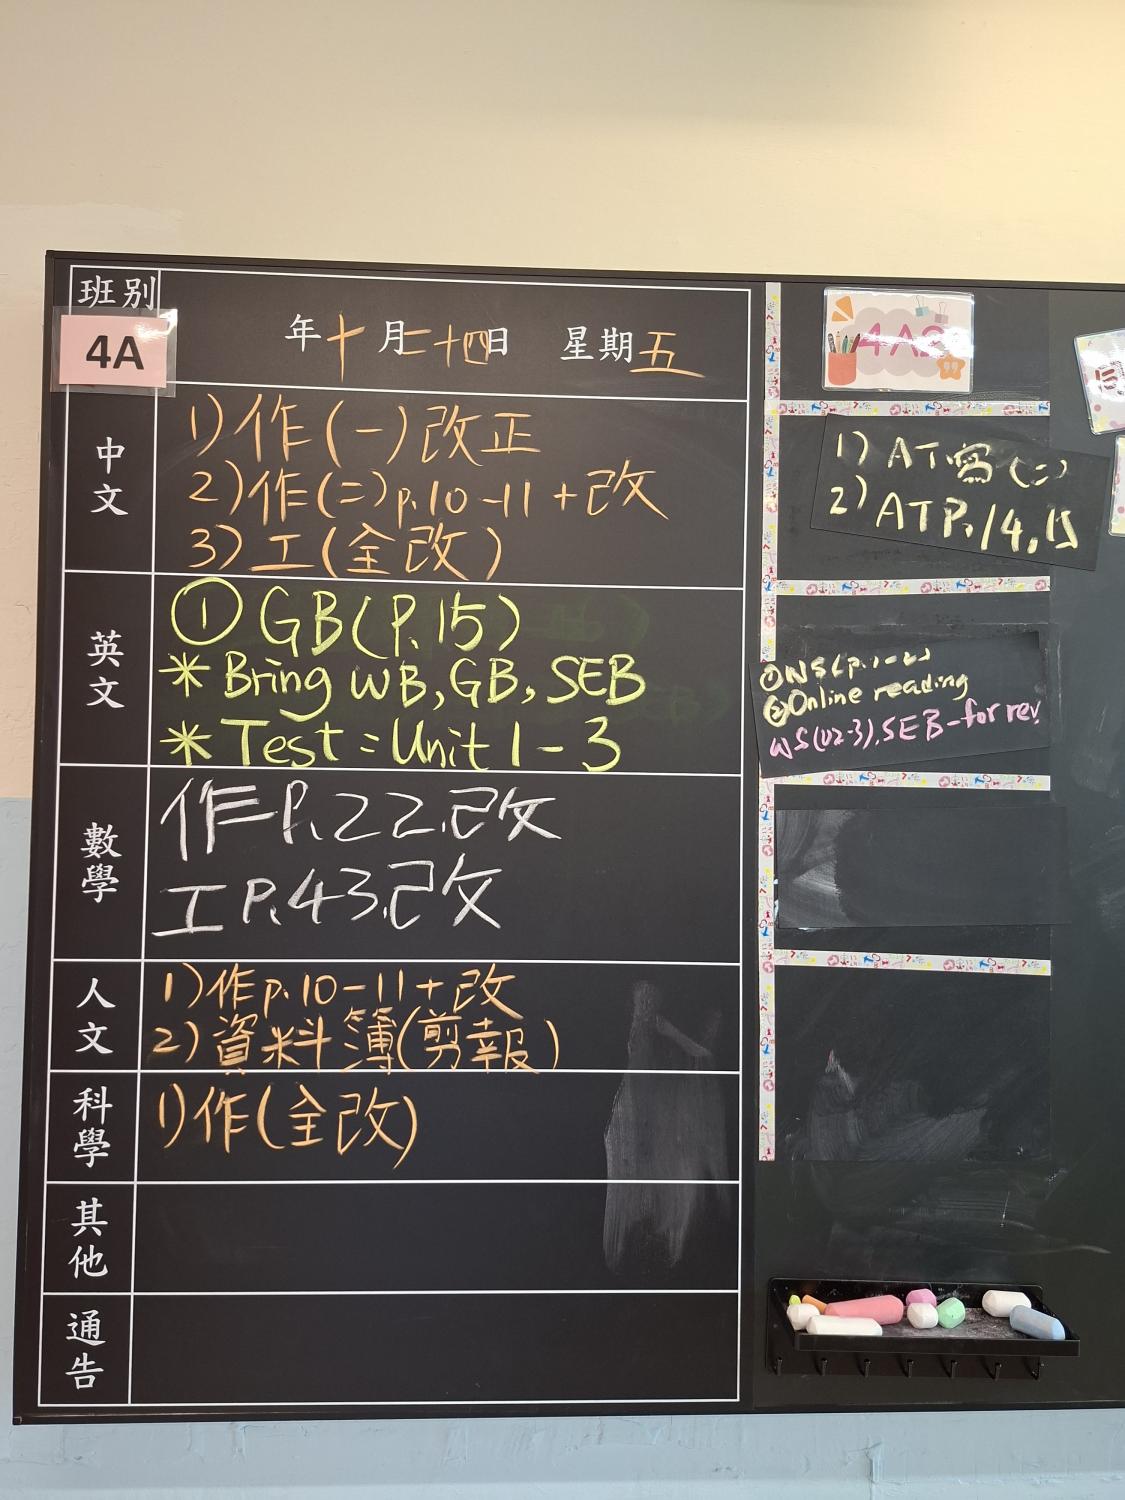 班別
4A
年十月二十四日 星期五
中文
1)作(一)改正
2)作(二)p.10-11+改
3)工(全改)
英文
① GB(P.15)
* Bring WB, GB, SEB
* Test: Unit 1-3
數學
作P.22.改
工P.43.改
人文
1)作p.10-11+改
2)資料簿(剪報)
科學
1)作(全改)
其他
通告
4A2
1) AT.寫(二)
2) AT P.14,15
①WS(p.1-2)
②Online reading
WS(U2-3), SEB-for rev